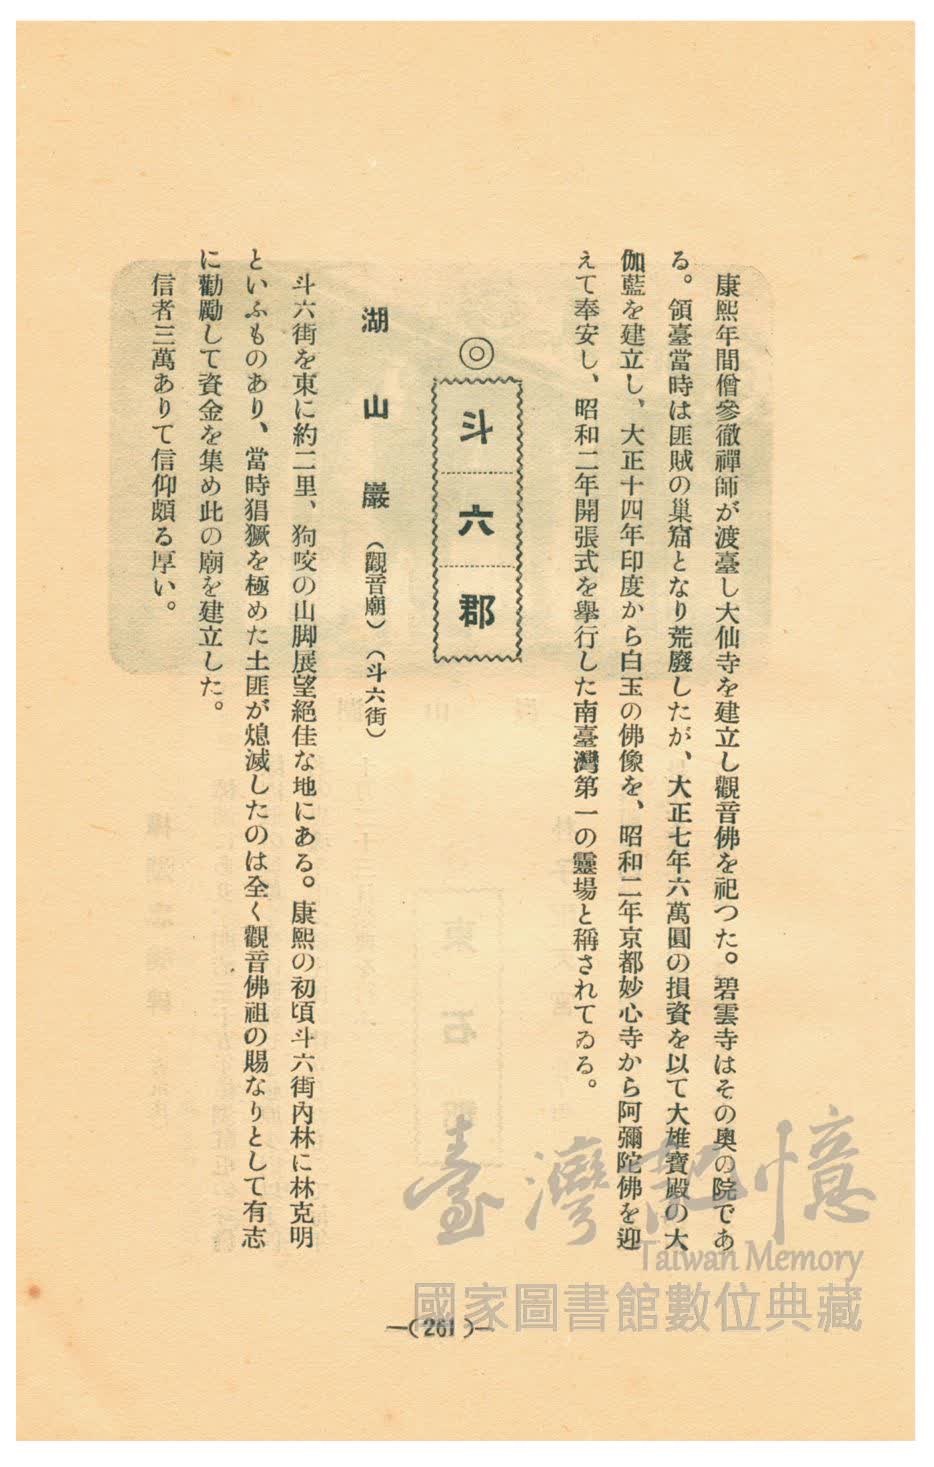 康熙年間僧參徹禪師が渡臺し大仙寺を建立し觀音佛を祀つた。碧雲寺はその奥の院であ
る。領臺當時は匪賊の巢窟となり荒廢したが、大正七年六萬圓の損資を以て大雄寶殿の大
伽藍を建立し、大正十四年印度から白玉の佛像を、昭和二年京都妙心寺から阿彌陀佛を迎
えて奉安し、昭和二年開張式を擧行した南臺灣第一の靈場と稱されてゐる。
◎斗六郡
湖山巖（觀音廟）（斗六街）
斗六街を東に約二里、狗咬の山脚展望絕佳な地にある。康熙の初頃斗六街內林に林克明
といふものあり、當時猖獗を極めた土匪が熄滅したのは全く觀音佛祖の賜なりとして有志
に勸勵して資金を集め此の廟を建立した。
信者三萬ありて信仰頗る厚い。
—(261)—
臺灣記憶
Taiwan Memory
國家圖書館數位典藏